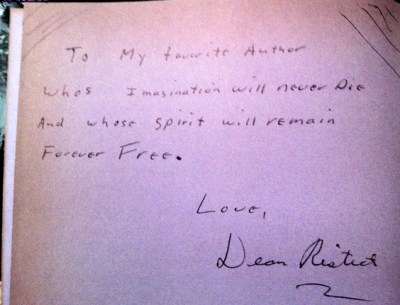 To My favorite Author
whos Imagination will never Die
And whose spirit will remain
Forever Free.
Love,
Dean